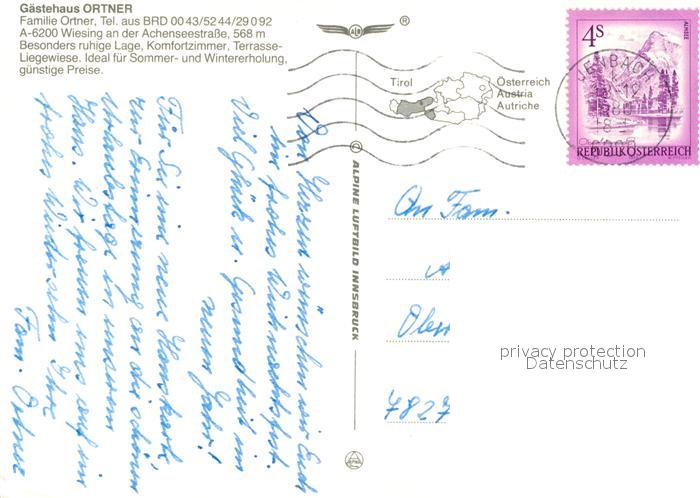 Gästehaus ORTNER
Familie Ortner, Tel. aus BRD 00 43/52 44/29 0 92
A-6200 Wiesing an der Achenseestraße, 568 m
Besonders ruhige Lage, Komfortzimmer, Terrasse-
Liegewiese. Ideal für Sommer- und Wintererholung,
günstige Preise.
Von Herzen wünschen wir Euch
ein frohes Weihnachtsfest.
Viel Glück u. Gesundheit im
neuen Jahr!
Für Sie eine neue Hauskarte,
zur Erinnerung an die schönen
Urlaubstage in unserem
Haus. Wir freuen uns auf ein
frohes Wiedersehn Ihre
Fam. Ortner
ALPINE LUFTBILD INNSBRUCK
Tirol
Österreich
Austria
Autriche
JENBACH
4S
ALMSEE
REPUBLIK ÖSTERREICH
An Fam.
7827
privacy protection
Datenschutz